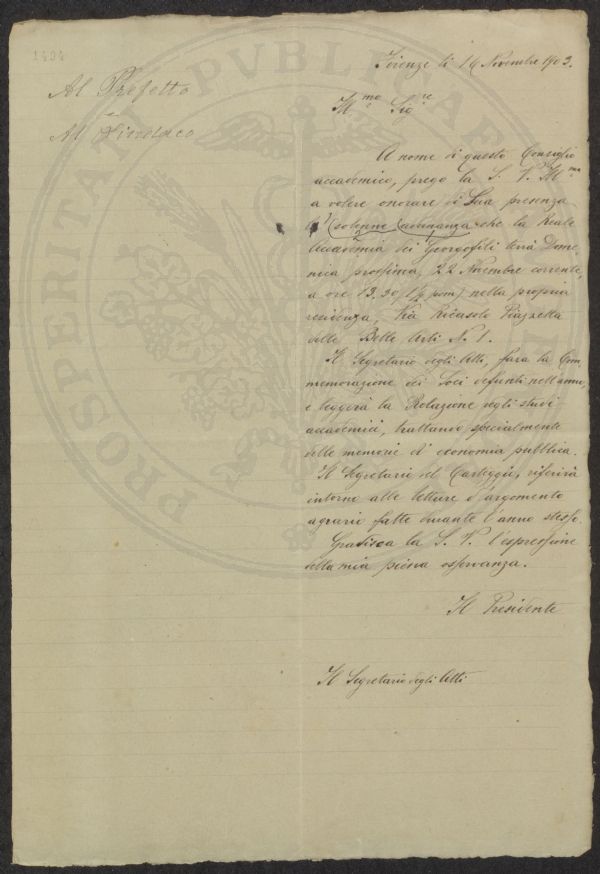 1404
Firenze li 16 Novembre 1903.
Al Prefetto
Al Sindaco
Ill.mo Sig.re
A nome di questo Consiglio
accademico, prego la S. V. Ill.ma
a volere onorare di Sua presenza
(solenne) adunanza che la Reale
Accademia dei Georgofili terrà Dome-
nica prossima, 22 Novembre corrente,
a ore 13.30 (1½ pom.) nella propria
residenza, Via Ricasole Piazzetta
delle Belle Arti N. 1.
Il Segretario degli Atti, farà la Com-
memorazione dei Soci defunti nell'anno,
e leggerà la Relazione degli studi
accademici, trattando specialmente
delle memorie d'economia pubblica.
Il Segretario del Carteggio, riferirà
intorno alle letture d'argomento
agrario fatte durante l'anno stesso.
Gradisca la S. V. l'espressione
della mia piena osservanza.
Il Presidente
Il Segretario degli Atti
PROSPERITATI PVBLICAE